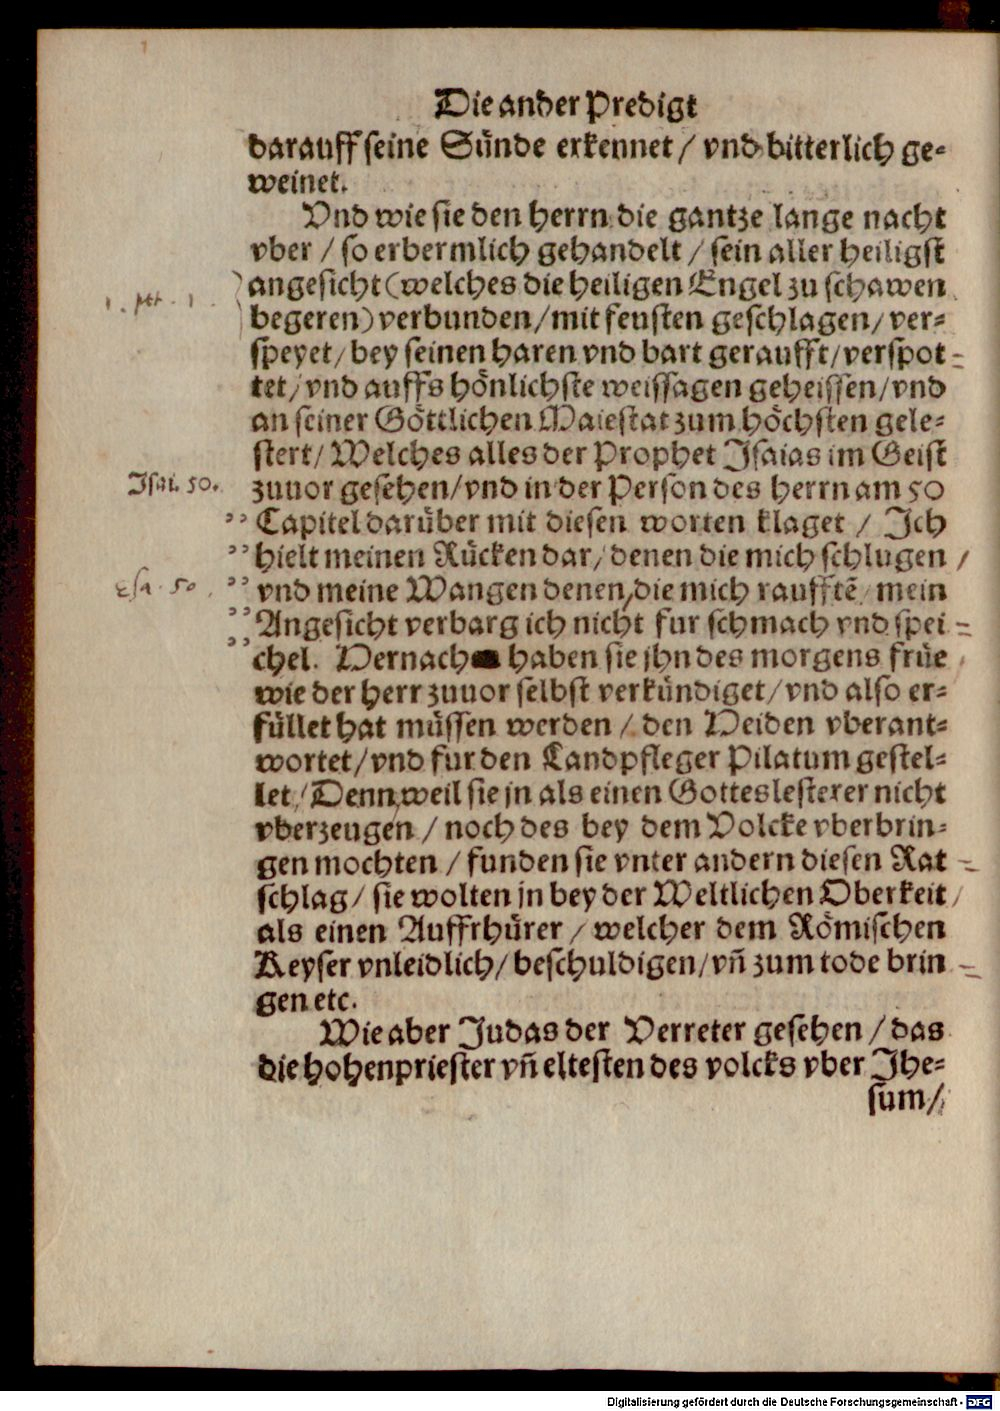 Die ander Predigt
darauff seine Sünde erkennet / vnd bitterlich ge-
weinet.
Vnd wie sie den herrn die gantze lange nacht
vber / so erbermlich gehandelt / sein aller heiligst
angesicht (welches die heiligen Engel zu schawen
1. pet. 1.
begeren) verbunden / mit feusten geschlagen / ver-
speyet / bey seinen haren vnd bart geraufft / verspot-
tet / vnd auffs hönlichste weissagen geheissen / vnd
an seiner Göttlichen Maiestat zum höchsten gele-
stert / Welches alles der Prophet Isaias im Geist
Isai. 50.
zuuor gesehen / vnd in der Person des herrn am 50
Capitel darüber mit diesen worten klaget / Ich
hielt meinen Rücken dar / denen die mich schlugen /
Esa. 50.
vnd meine Wangen denen / die mich raufftē / mein
Angesicht verbarg ich nicht fur schmach vnd spei-
chel. Dernach haben sie jhn des morgens früe /
wie der herr zuuor selbst verkündiget / vnd also er-
füllet hat müssen werden / den Heiden vberant-
wortet / vnd fur den Landpfleger Pilatum gestel-
let / Denn weil sie jn als einen Gotteslesterer nicht
vberzeugen / noch des bey dem Volcke vberbrin-
gen mochten / funden sie vnter andern diesen Rat-
schlag / sie wolten jn bey der Weltlichen Oberkeit /
als einen Auffrhürer / welcher dem Römischen
Keyser vnleidlich / beschuldigen / vñ zum tode brin-
gen etc.
Wie aber Judas der Verreter gesehen / das
die hohenpriester vñ eltesten des volcks vber Jhe-
sum /
Digitalisierung gefördert durch die Deutsche Forschungsgemeinschaft - DFG